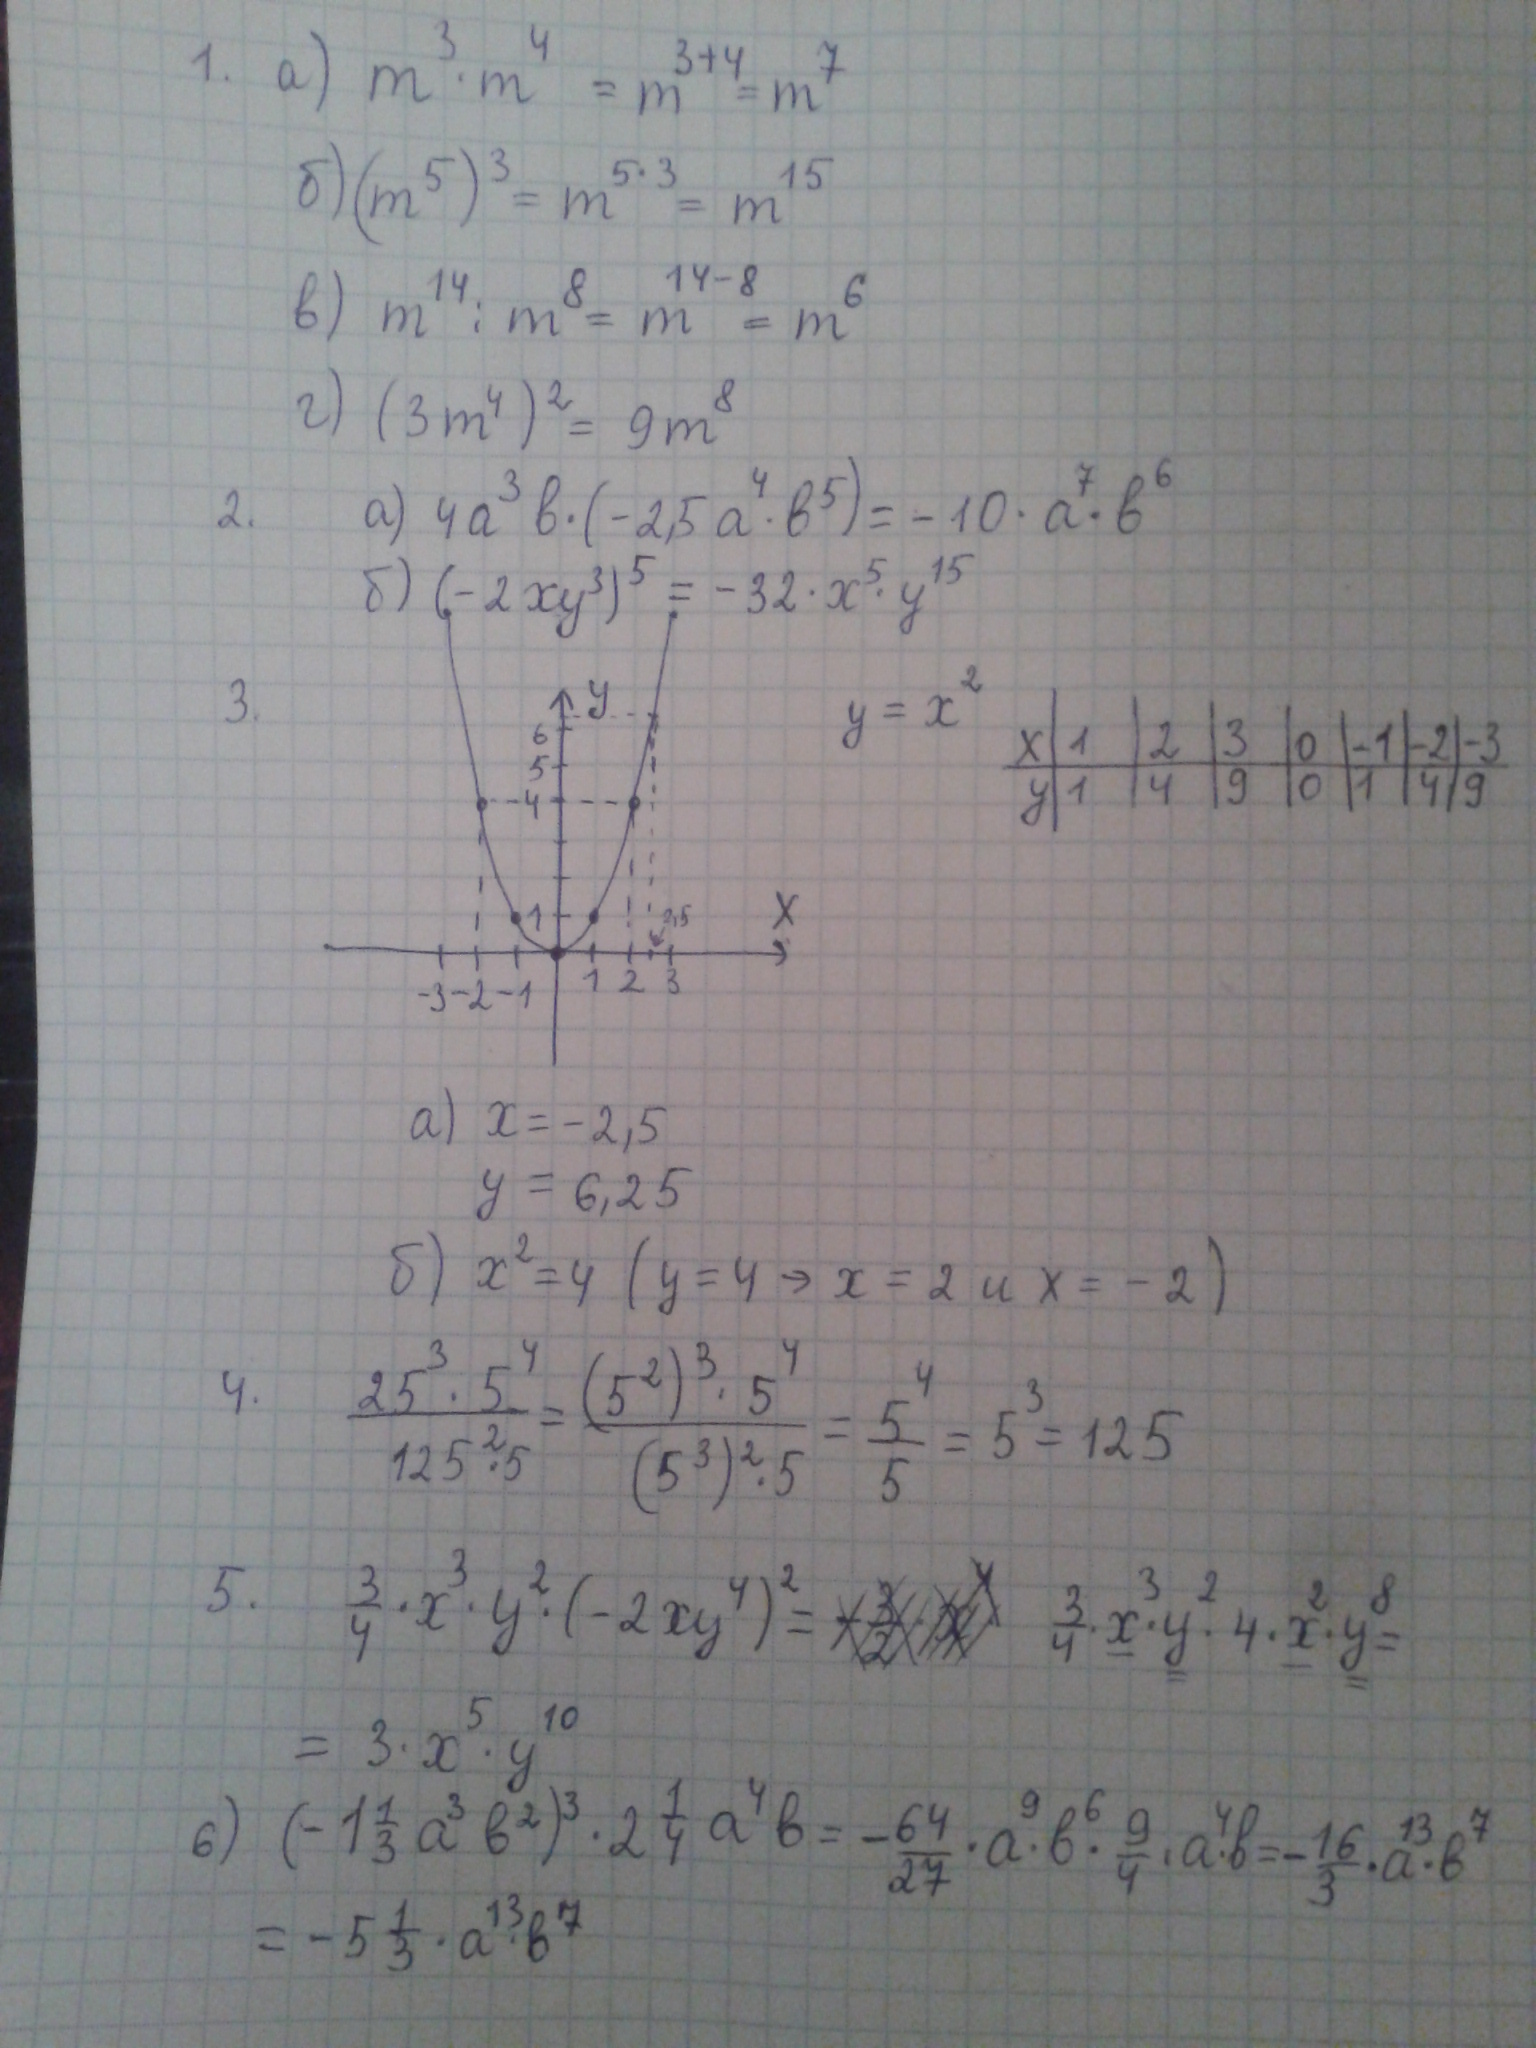 1. а) m³·m⁴ = m³⁺⁴ = m⁷
б) (m⁵)³ = m⁵·³ = m¹⁵
в) m¹⁴ : m⁸ = m¹⁴⁻⁸ = m⁶
г) (3m⁴)² = 9m⁸
2. а) 4a³b·(-2,5a⁴·b⁵) = -10·a⁷·b⁶
б) (-2xy³)⁵ = -32·x⁵·y¹⁵
3. y = x²
x 1 2 3 0 -1 -2 -3
y 1 4 9 0 1 4 9
y
6
5
4
1
2,5
X
-3 -2 -1 1 2 3
а) x = -2,5
y = 6,25
б) x² = 4 (y = 4 → x = 2 и x = -2)
4. 25³·5⁴/125²·5 = (5²)³·5⁴/(5³)²·5 = 5⁴/5 = 5³ = 125
5. 3/4·x³·y²·(-2xy⁴)² = 3/4·x³·y²·4·x²·y⁸ =
= 3·x⁵·y¹⁰
6) (-1 1/3 a³b²)³·2 1/4 a⁴b = -64/27·a⁹·b⁶·9/4·a⁴·b = -16/3·a¹³·b⁷
= -5 1/3·a¹³·b⁷